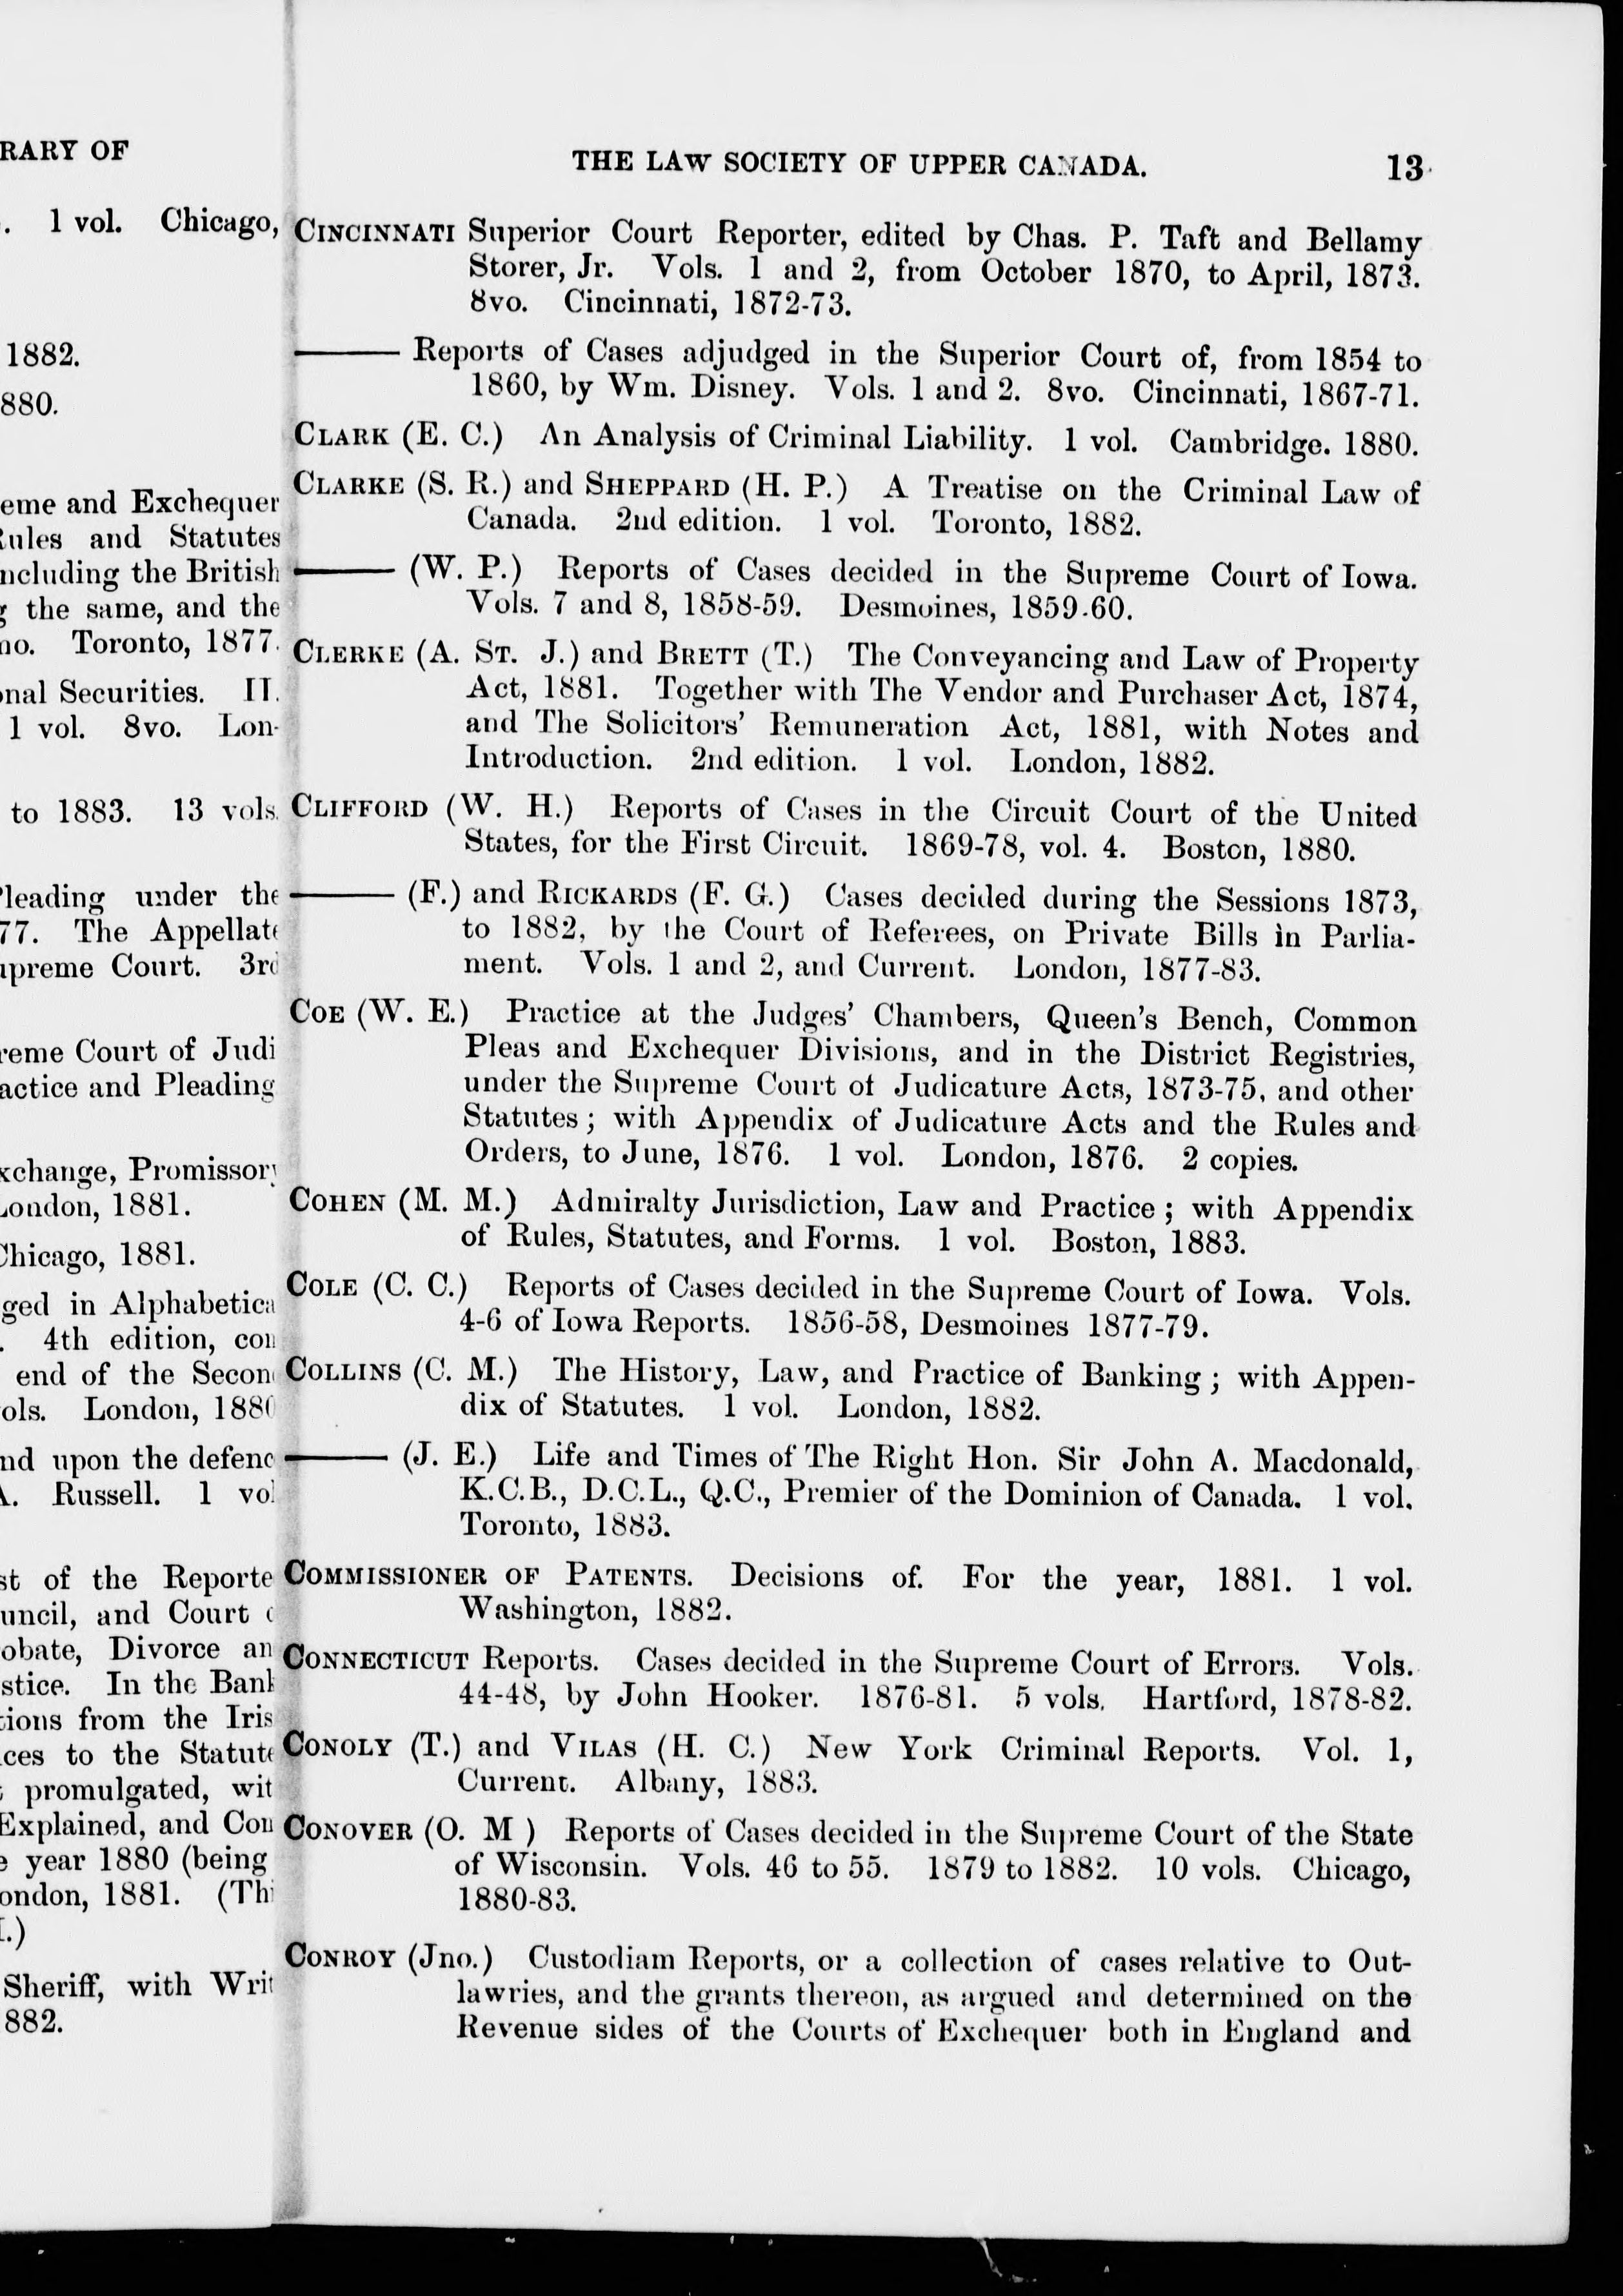 RARY OF
. 1 vol. Chicago,
1882.
880.
eme and Exchequer
Rules and Statutes
ncluding the British
g the same, and the
no. Toronto, 1877.
onal Securities. II.
1 vol. 8vo. Lon-
to 1883. 13 vols.
Pleading under the
77. The Appellate
upreme Court. 3rd
reme Court of Judi
actice and Pleading
xchange, Promissory
London, 1881.
Chicago, 1881.
ged in Alphabetica
. 4th edition, con
end of the Second
ols. London, 1880
nd upon the defenc
A. Russell. 1 vol
st of the Reporte
uncil, and Court o
obate, Divorce an
stice. In the Bank
tions from the Iris
ces to the Statute
; promulgated, wit
Explained, and Con
e year 1880 (being
ondon, 1881. (Thi
I.)
Sheriff, with Writ
882.
THE LAW SOCIETY OF UPPER CANADA. 13
CINCINNATI Superior Court Reporter, edited by Chas. P. Taft and Bellamy
Storer, Jr. Vols. 1 and 2, from October 1870, to April, 1873.
8vo. Cincinnati, 1872-73.
——— Reports of Cases adjudged in the Superior Court of, from 1854 to
1860, by Wm. Disney. Vols. 1 and 2. 8vo. Cincinnati, 1867-71.
CLARK (E. C.) An Analysis of Criminal Liability. 1 vol. Cambridge. 1880.
CLARKE (S. R.) and SHEPPARD (H. P.) A Treatise on the Criminal Law of
Canada. 2nd edition. 1 vol. Toronto, 1882.
——— (W. P.) Reports of Cases decided in the Supreme Court of Iowa.
Vols. 7 and 8, 1858-59. Desmoines, 1859-60.
CLERKE (A. ST. J.) and BRETT (T.) The Conveyancing and Law of Property
Act, 1881. Together with The Vendor and Purchaser Act, 1874,
and The Solicitors' Remuneration Act, 1881, with Notes and
Introduction. 2nd edition. 1 vol. London, 1882.
CLIFFORD (W. H.) Reports of Cases in the Circuit Court of the United
States, for the First Circuit. 1869-78, vol. 4. Boston, 1880.
——— (F.) and RICKARDS (F. G.) Cases decided during the Sessions 1873,
to 1882, by the Court of Referees, on Private Bills in Parlia-
ment. Vols. 1 and 2, and Current. London, 1877-83.
COE (W. E.) Practice at the Judges' Chambers, Queen's Bench, Common
Pleas and Exchequer Divisions, and in the District Registries,
under the Supreme Court of Judicature Acts, 1873-75, and other
Statutes; with Appendix of Judicature Acts and the Rules and
Orders, to June, 1876. 1 vol. London, 1876. 2 copies.
COHEN (M. M.) Admiralty Jurisdiction, Law and Practice; with Appendix
of Rules, Statutes, and Forms. 1 vol. Boston, 1883.
COLE (C. C.) Reports of Cases decided in the Supreme Court of Iowa. Vols.
4-6 of Iowa Reports. 1856-58, Desmoines 1877-79.
COLLINS (C. M.) The History, Law, and Practice of Banking; with Appen-
dix of Statutes. 1 vol. London, 1882.
——— (J. E.) Life and Times of The Right Hon. Sir John A. Macdonald,
K.C.B., D.C.L., Q.C., Premier of the Dominion of Canada. 1 vol.
Toronto, 1883.
COMMISSIONER OF PATENTS. Decisions of. For the year, 1881. 1 vol.
Washington, 1882.
CONNECTICUT Reports. Cases decided in the Supreme Court of Errors. Vols.
44-48, by John Hooker. 1876-81. 5 vols. Hartford, 1878-82.
CONOLY (T.) and VILAS (H. C.) New York Criminal Reports. Vol. 1,
Current. Albany, 1883.
CONOVER (O. M ) Reports of Cases decided in the Supreme Court of the State
of Wisconsin. Vols. 46 to 55. 1879 to 1882. 10 vols. Chicago,
1880-83.
CONROY (Jno.) Custodiam Reports, or a collection of cases relative to Out-
lawries, and the grants thereon, as argued and determined on the
Revenue sides of the Courts of Exchequer both in England and